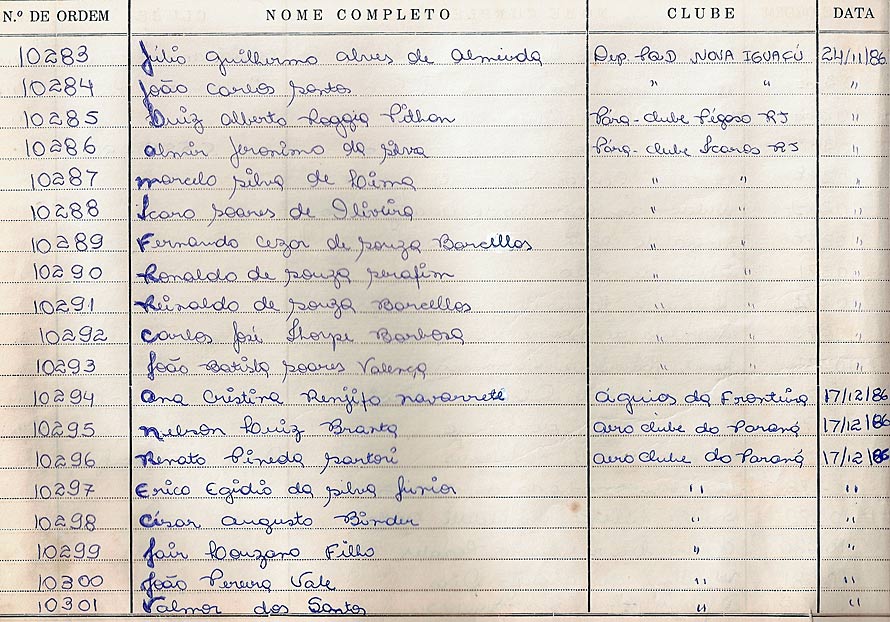 N.º DE ORDEM NOME COMPLETO CLUBE DATA
10283 Júlio Guilhermo Alves de Almeida Dep. PQD NOVA IGUAÇÚ 24/11/86
10284 João Carlos Santos " " "
10285 Luiz Alberto Raggio Pithon Pára-clube Pégaso RJ "
10286 Almir Jeronimo da Silva Pára-clube Ícaros RJ "
10287 Marcelo Silva de Lima " " "
10288 Ícaro Soares de Oliveira " " "
10289 Fernando Cezar de Souza Barcellos " " "
10290 Ronaldo de Souza Serafim " " "
10291 Reinaldo de Souza Barcellos " " "
10292 Carlos José Thorpe Barbosa " " "
10293 João Batista Soares Valença " " "
10294 Ana Cristina Renjifo Navarrete Águias da Fronteira 17/12/86
10295 Nelson Luiz Branta Aero clube do Paraná 17/12/86
10296 Renato Pineda Sartori Aero clube do Paraná 17/12/86
10297 Erico Egidio da Silva Junior " "
10298 César Augusto Binder " "
10299 Jair Lauzano Filho " "
10300 João Pereira Vale " "
10301 Valmor dos Santos " "